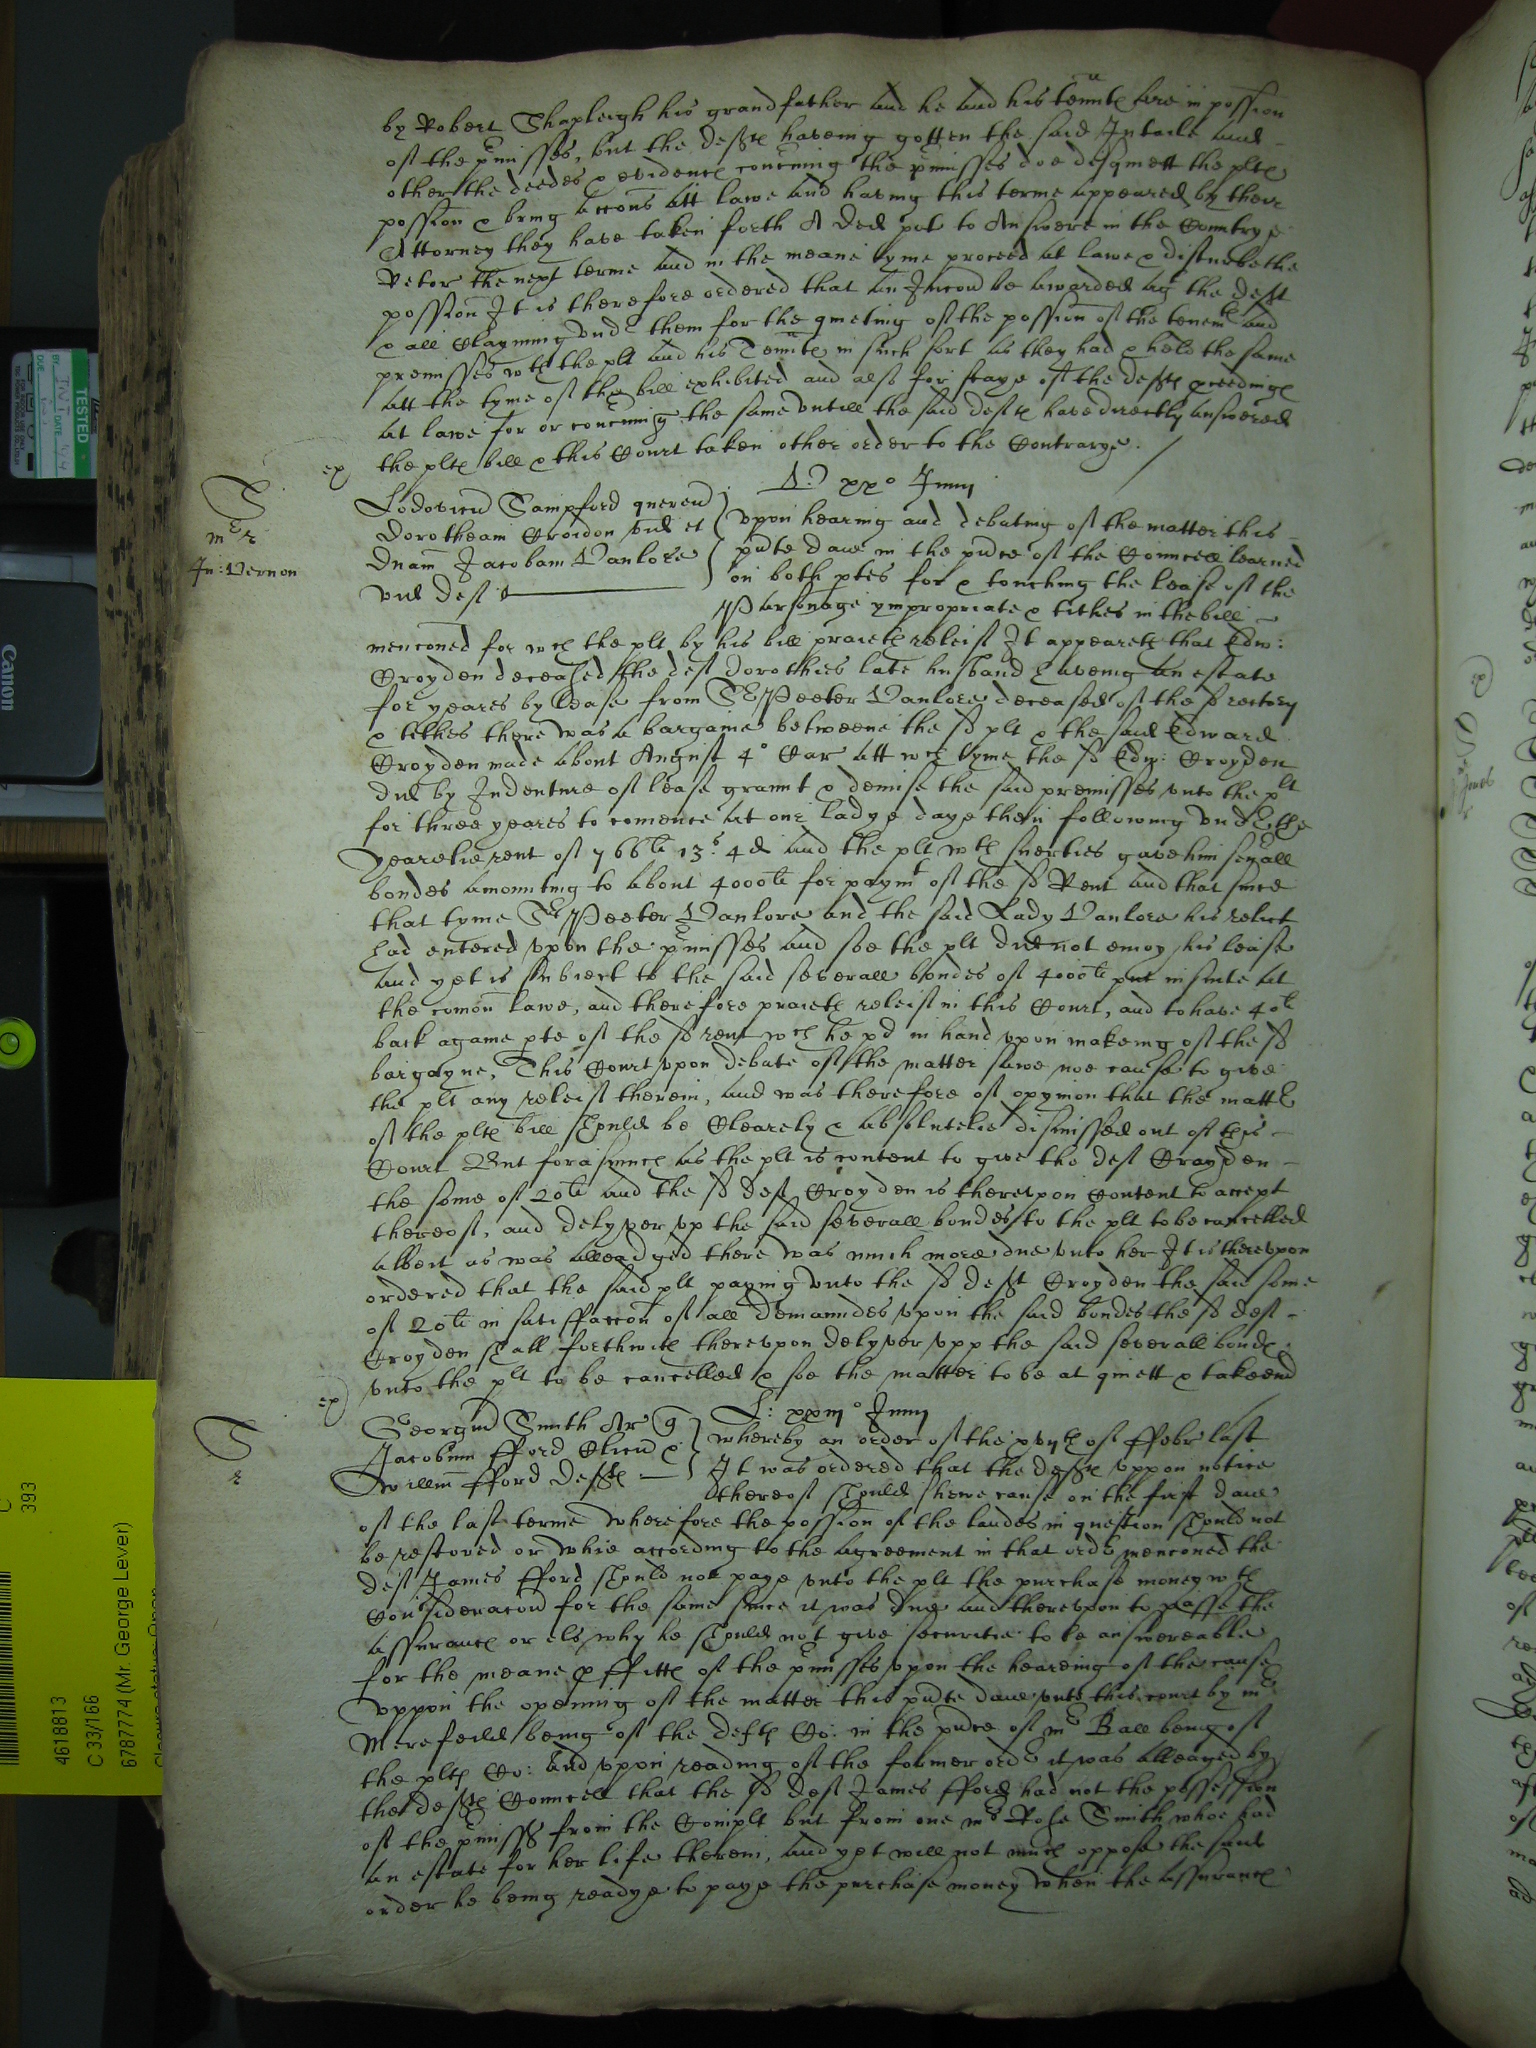 by Robert Shapleigh his grandfather and he and his tennts are in possion
of the pmisses, but the defts haveing gotten the said Intaile and
other the deedes & evidence concerning the pmisses doe disquiett the plts
possion & bring accons att lawe and having this terme appeared by their
Attorney they have taken forth A ded pot to Answere in the Countrye
Retor the next terme and in the meane tyme proceed at lawe & disturbe the
possion It is therefore ordered that an Iniuncon be awarded agt the deft
& all Clayming undr them for the quieting of the possion of the tenemts and
premisses wth the plt and his Tennts in such sort as they had & held the same
att the tyme of the bill exhibited and also for staye of the defts proceedings
at lawe for or concerning the same untill the said defts have directly answered
the plts bill & this Court taken other order to the Contrarye.
ex
S
mr r
Jn: Vernon
Lodovicu Sampford quereu
Dorotheam Croidon vid et
Dnam Jacobam Vanlore
vid deft
D: xxo Junij
Upon hearing and debating of the matter this
pnte daie in the pnce of the Councell learned
on both ptes for & touching the lease of the
Parsonage ympropriate & tithes in the bill
menconed for wch the plt by his bill praieth releif It appeareth that Edw:
Croyden deceased the deft Dorothies late husband haveing an estate
for yeares by lease from Sr Peeter Vanlore deceased of the sd rectory
& tithes there was a bargaine betweene the sd plt & the said Edward
Croyden made about August 4o Car att wch tyme the sd Edw: Croyden
did by Indenture of lease graunt & demise the said premisses unto the plt
for three yeares to comence at our ladye daye then following undr the
yearelie rent of 766li 13s 4d and the plt wth suerties gave him severall
bondes amounting to about 4000li for paymt of the sd Rent and that since
that tyme Sr Peeter Vanlore and the said Lady Vanlore his relict
had entered upon the pmisses and soe the plt did not enioy his lease
and yet is subiect to the said severall bondes of 4000li put in suite at
the comon lawe, and therefore praieth releif in this Court, and to have 40li
back againe pte of the sd rent wch he pd in hand upon makeing of the sd
bargayne, This Court upon debate of the matter sawe noe cause to give
the plt any releif therein, and was therefore of opynion that the matter
of the plts bill should be Clearely & absolutelie dismissed out of this
Court But forasmuch as the plt is content to give the deft Croyden
the some of 20li and the sd deft Croyden is thereupon Content to accept
thereof, and delyver up the said severall bondes to the plt to be cancelled
albeit as was alleadged there was much more due unto her It is thereupon
ordered that the said plt paying unto the sd deft Croyden the said some
of 20li in satisfaccon of all demaundes upon the said bondes the sd deft
Croyden shall forthwith thereupon delyver upp the said severall bondes
unto the plt to be cancelled & soe the matter to be at quiett & take end
ex
S
r
Georgiu Smith Ar q
Jacobum Fford Clicu &
Willm Fford defts
L: xxiijo Junij
Whereby an order of the xvijth of Ffebr last
It was ordered that the defts uppon notice
thereof should shewe cause on the first daie
of the last terme wherefore the possion of the landes in question should not
be restored or whie according to the agreement in that ordr menconed the
deft James Fford should not paye unto the plt the purchase money wth
Consideracon for the same since it was due and thereupon to passe the
assurance or els why he should not give securitie to be answereable
for the meane pffitts of the pmisses upon the heareing of the cause
Uppon the opening of the matter this pnte daie unto this court by mr
Merefeild being of the defts Co: in the pnce of mr Ball being of
the plts Co: And upon reading of the former ordr it was alleaged by
the defts Councell that the sd deft James Fford had not the possession
of the pmisses from the Complt but from one mrs Rose Smith whoe had
an estate for her life therein, and yet will not much oppose the said
order he being readye to paye the purchase money when the assurance
TESTED
Canon
C
393
4618813
C 33/166
6787774 (Mr. George Lever)